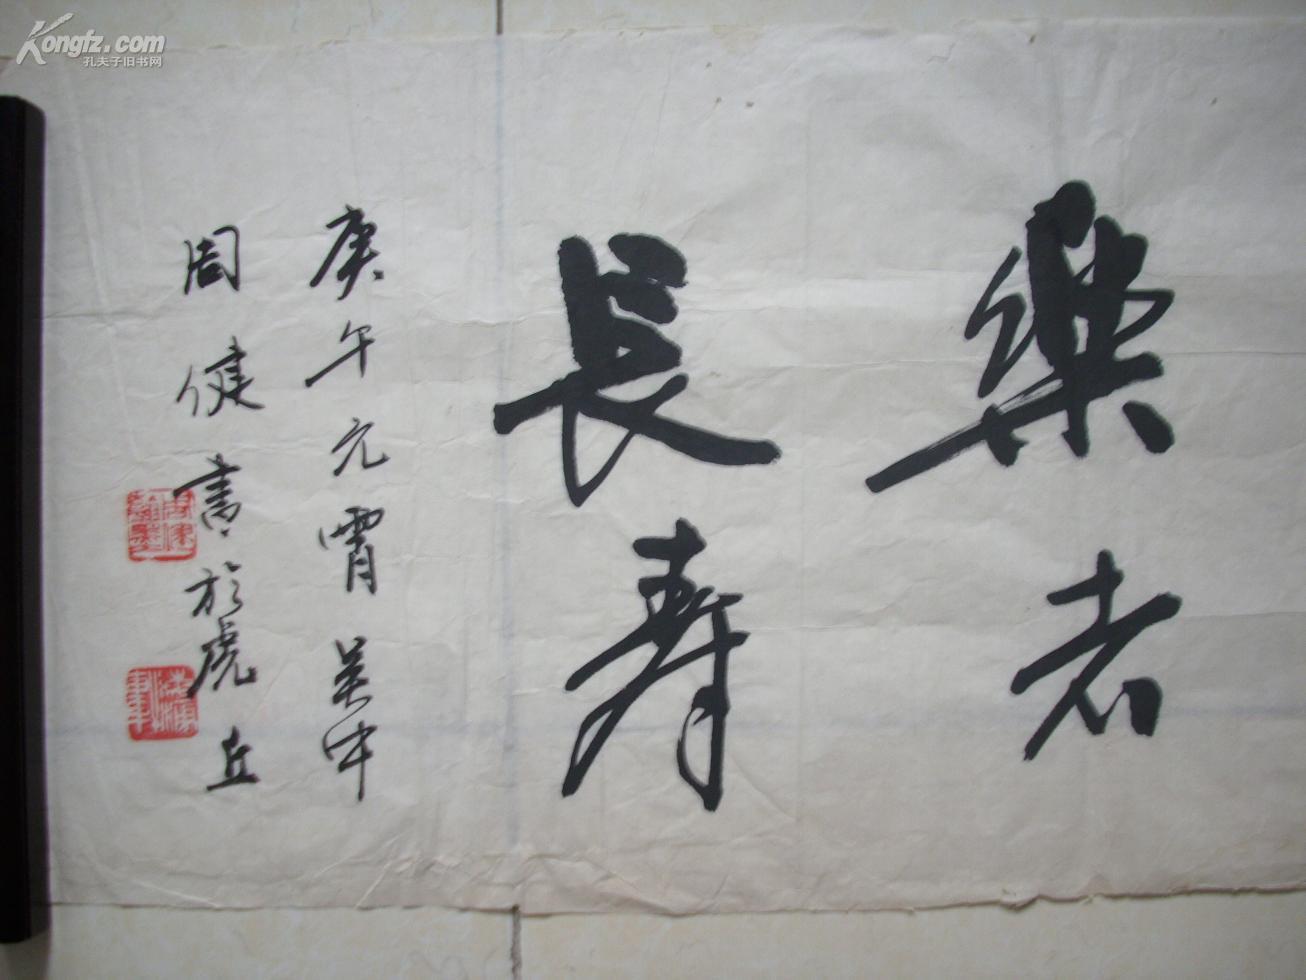 樂者
長寿
庚午元宵吴中
周健書於虎丘
Kongfz.com
孔夫子旧书网